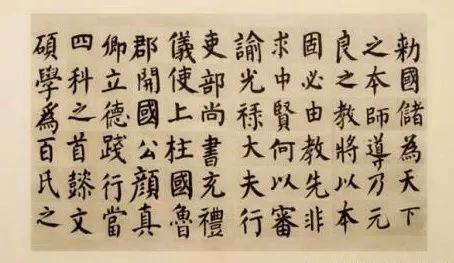 勅國儲為天下
之本師導乃元
良之教將以本
固必由教先非
求中賢何以審
諭光禄大夫行
吏部尚書充禮
儀使上柱國魯
郡開國公顏真
卿立德踐行當
四科之首懿文
碩學爲百氏之